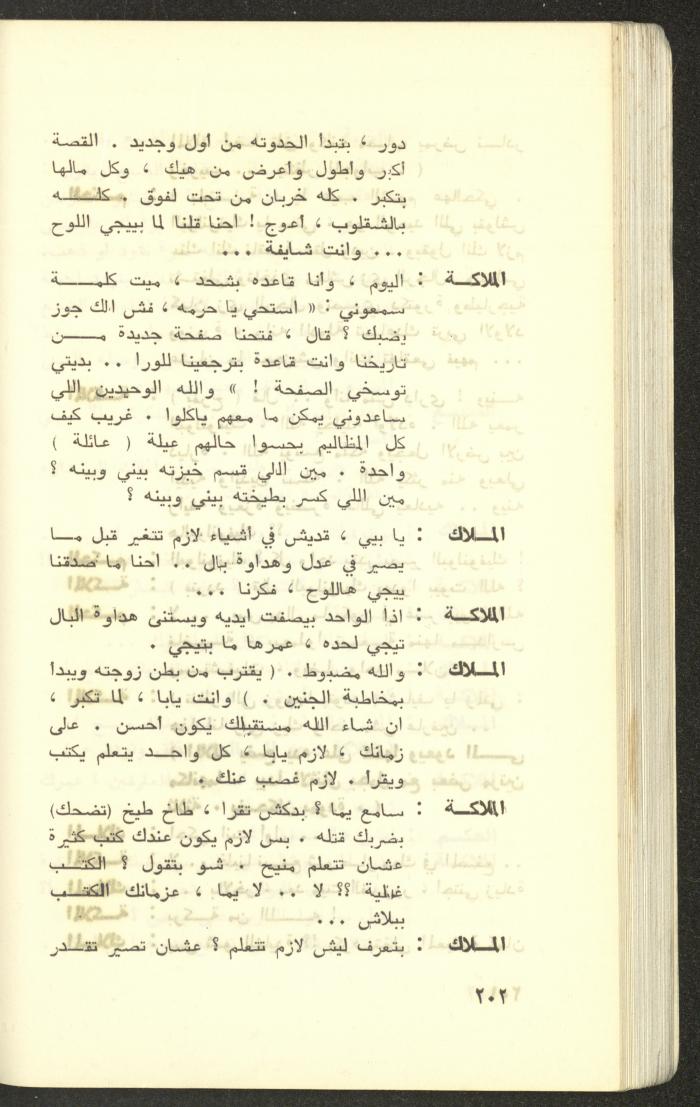 دور ، بتبدا الحدوته من أول وجديد . القصة
أكبر وأطول وأعرض من هيك ، وكل مالها
بتكبر . كله خربان من تحت لفوق . كلـــه
بالشقلوب ، أعوج ! احنا قلنا لما بييجي اللوح
... وانت شايفة ...
الملاكـة : اليوم ، وأنا قاعده بشحد ، ميت كلمــــة
سمعوني : « استحي يا حرمه ، فش الك جوز
يضبك ؟ قال ، فتحنا صفحة جديدة مــــن
تاريخنا وانت قاعدة بترجعينا للورا .. بديتي
توسخي الصفحة ! » والله الوحيدين اللي
ساعدوني يمكن ما معهم ياكلوا . غريب كيف
كل المظاليم بحسوا حالهم عيلة ( عائلة )
واحدة . مين اللي قسم خبزته بيني وبينه ؟
مين اللي كسر بطيخته بيني وبينه ؟
المـلاك : يا بيي ، قديش في أشياء لازم تتغير قبل مــا
يصير في عدل وهداوة بال .. احنا ما صدقنا
ييجي هاللوح ، فكرنا ...
الملاكـة : اذا الواحد بيصفت ايديه ويستنى هداوة البال
تيجي لحده ، عمرها ما بتيجي .
المـلاك : والله مضبوط . ( يقترب من بطن زوجته ويبدا
بمخاطبة الجنين . ) وانت يابا ، لما تكبر ،
ان شاء الله مستقبلك يكون أحسن . على
زمانك ، لازم يابا ، كل واحــد يتعلم يكتب
ويقرا . لازم غصب عنك .
الملاكـة : سامع يما ؟ بدكش تقرا ، طاخ طيخ (تضحك)
بضربك قتله . بس لازم يكون عندك كتب كثيرة
عشان تتعلم منيح . شو بتقول ؟ الكتــب
غالية ؟؟ لا .. لا يما ، عزمانك الكتــب
ببلاش ...
المـلاك : بتعرف ليش لازم تتعلم ؟ عشان تصير تقــدر
٢٠٢